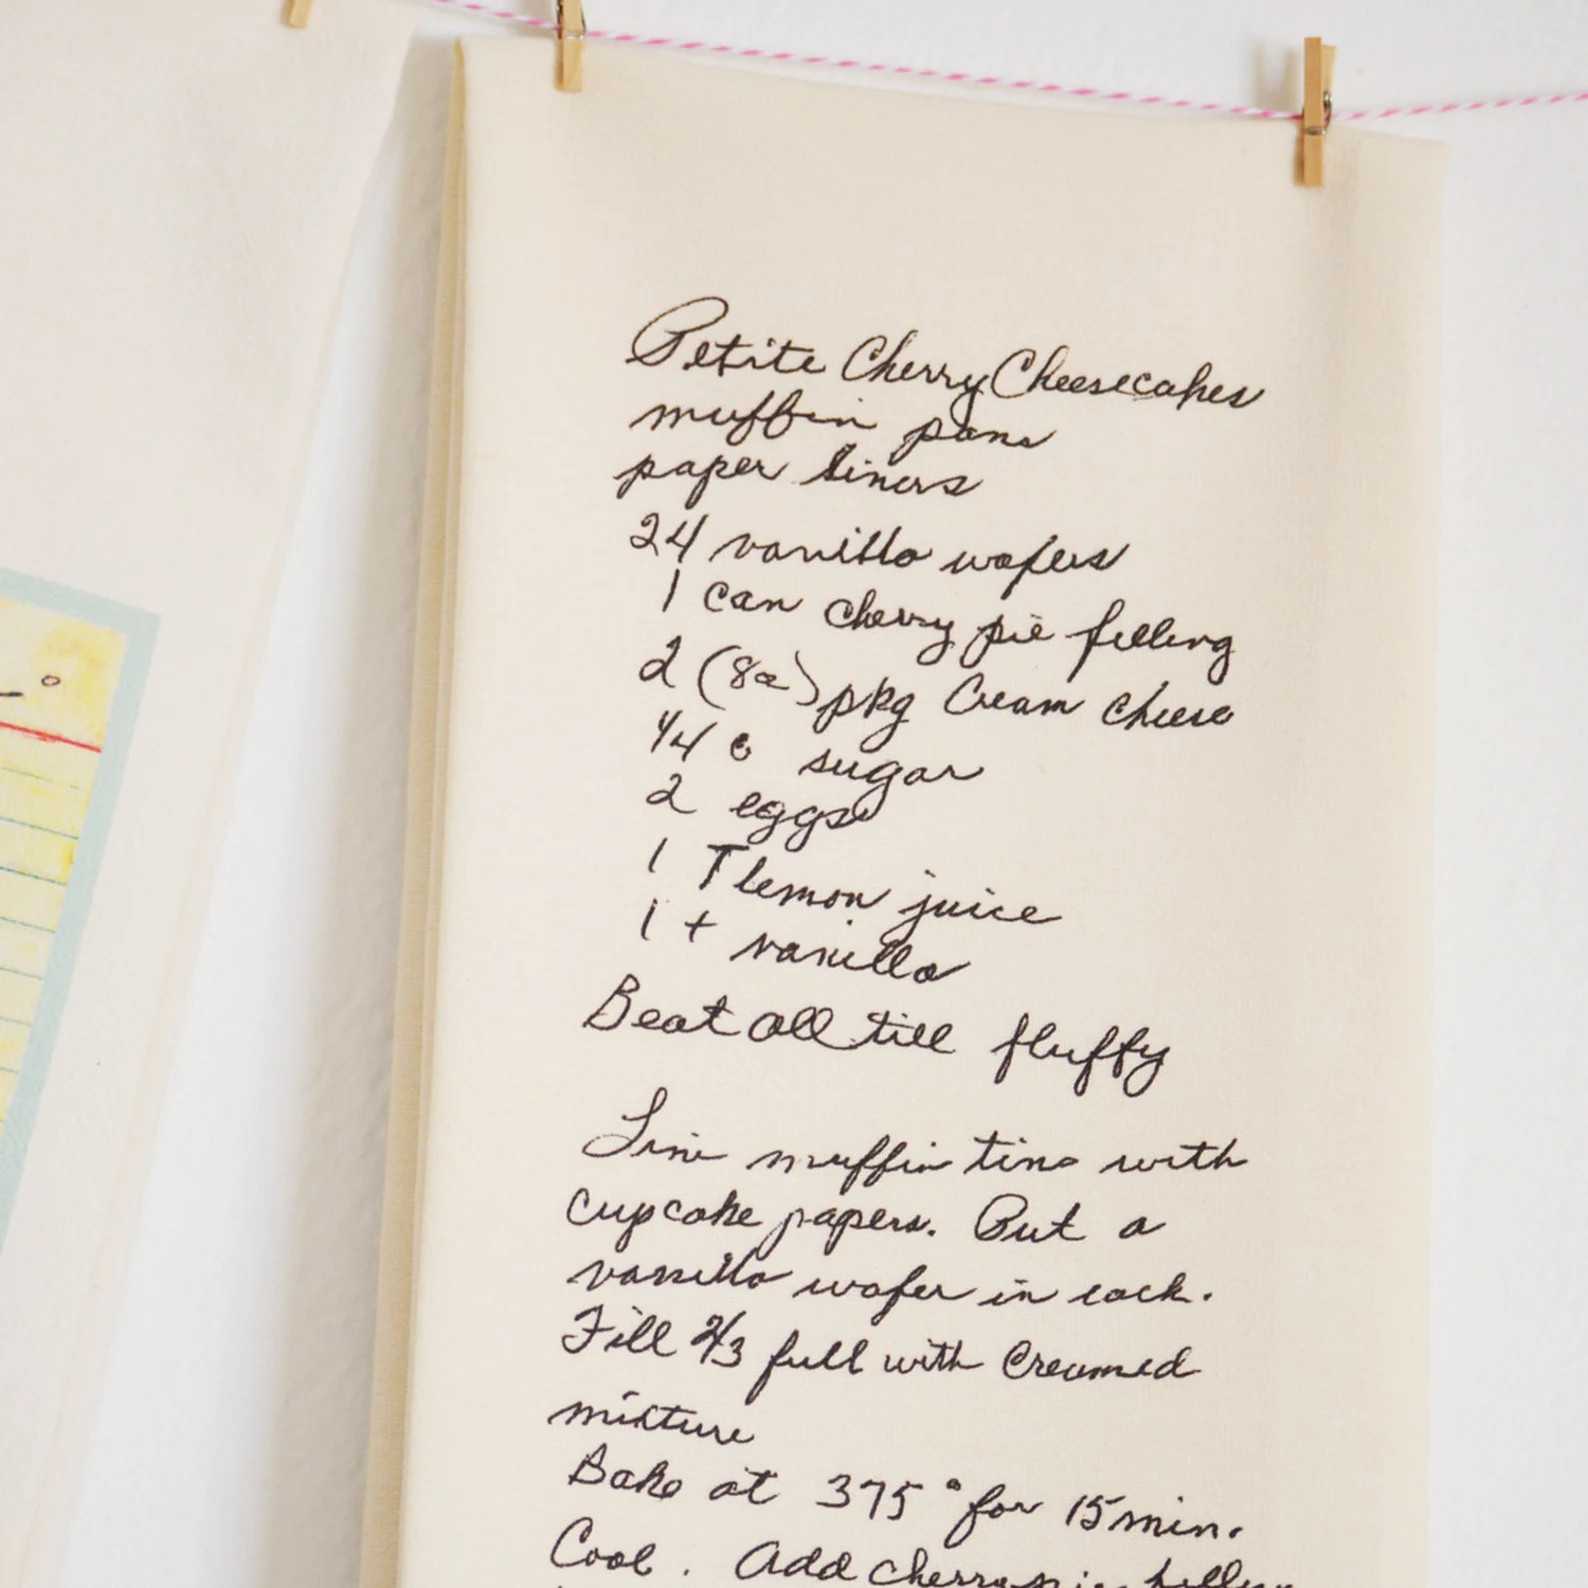 Petite Cherry Cheesecakes
muffin pans
paper liners
24 vanilla wafers
1 can cherry pie filling
2 (8oz) pkg Cream cheese
c sugar
2 eggs
1 T lemon juice
1 t vanilla
Beat all till fluffy
Line muffin tins with
cupcake papers. Put a
vanilla wafer in each.
Fill 2/3 full with Creamed
mixture
Bake at 375° for 15 min.
Cool. Add cherry pie filling